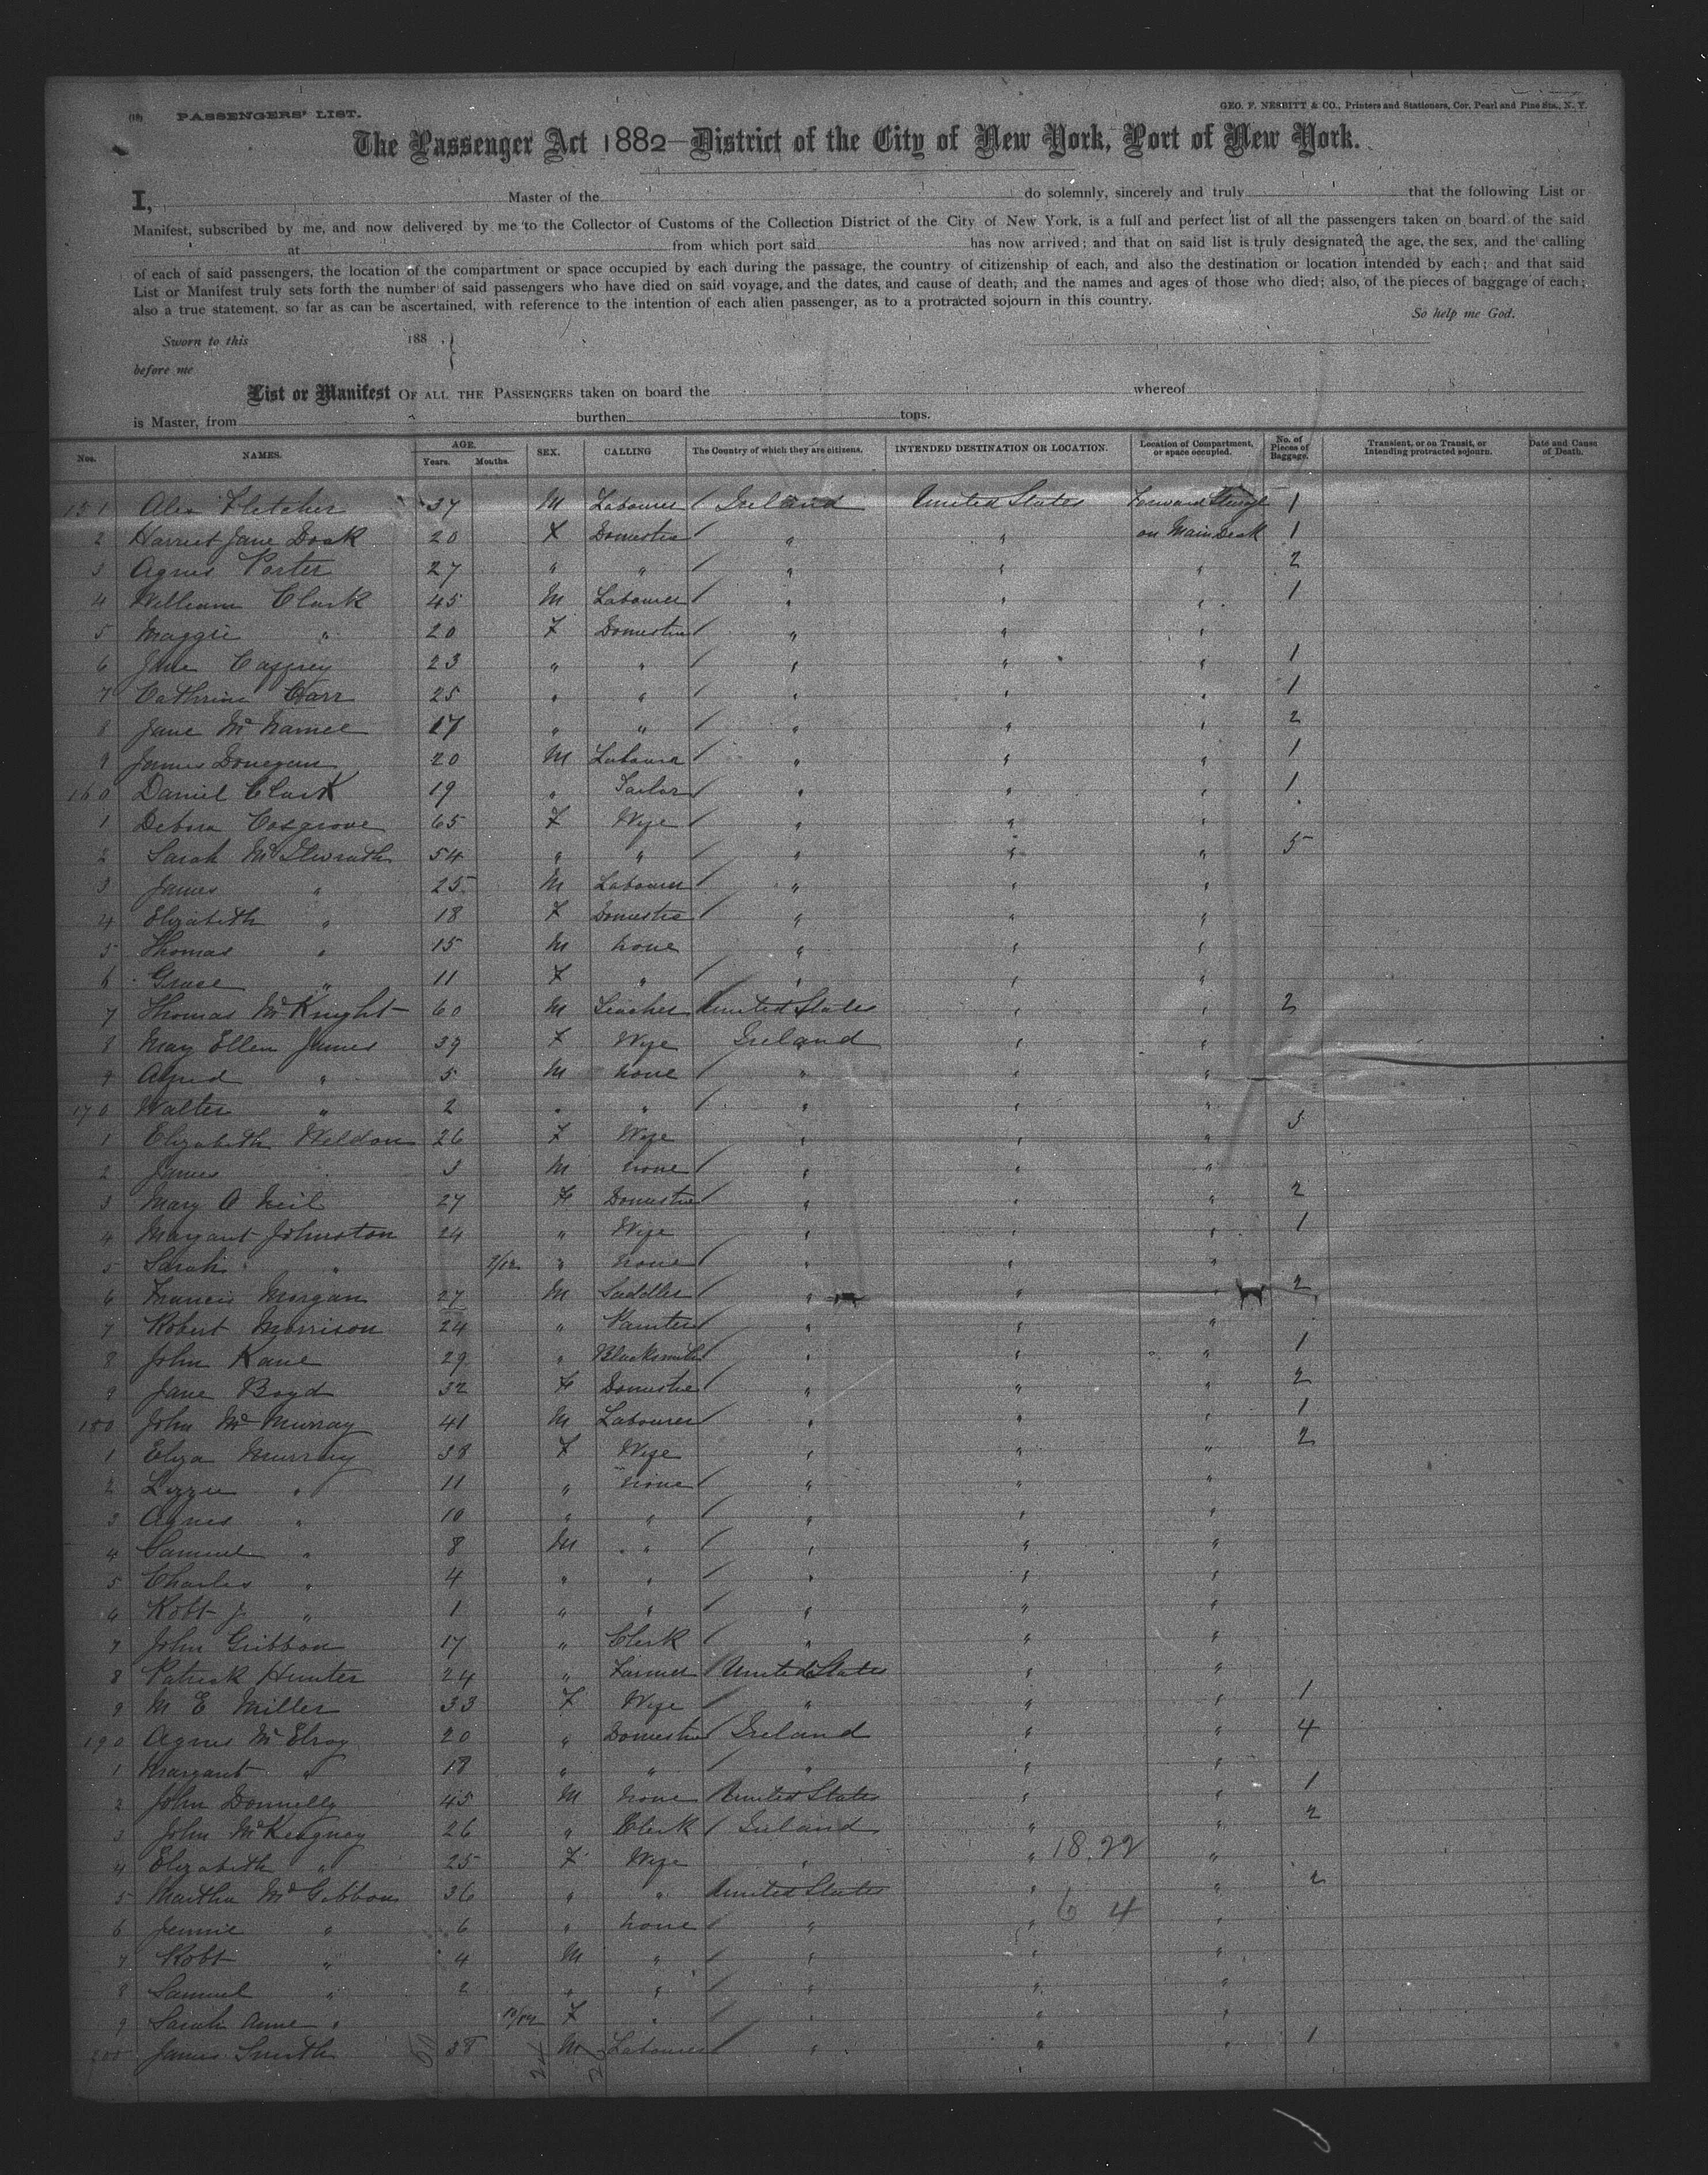 PASSENGERS' LIST.
GEO. F. NESBITT & CO., Printers and Stationers, Cor. Pearl and Pine Sts., N. Y.
The Passenger Act 1882—District of the City of New York, Port of New York.
I, Master of the do solemnly, sincerely and truly that the following List or
Manifest, subscribed by me, and now delivered by me to the Collector of Customs of the Collection District of the City of New York, is a full and perfect list of all the passengers taken on board of the said
at from which port said has now arrived; and that on said list is truly designated the age, the sex, and the calling
of each of said passengers, the location of the compartment or space occupied by each during the passage, the country of citizenship of each, and also the destination or location intended by each; and that said
List or Manifest truly sets forth the number of said passengers who have died on said voyage, and the dates, and cause of death; and the names and ages of those who died; also, of the pieces of baggage of each;
also a true statement, so far as can be ascertained, with reference to the intention of each alien passenger, as to a protracted sojourn in this country.
So help me God.
Sworn to this 188 . }
before me
List or Manifest OF ALL THE PASSENGERS taken on board the whereof
is Master, from burthen tons.
Nos. NAMES. AGE. Years. Months. SEX. CALLING The Country of which they are citizens. INTENDED DESTINATION OR LOCATION. Location of Compartment, or space occupied. No. of Pieces of Baggage. Transient, or on Transit, or Intending protracted sojourn. Date and Cause of Death.
151 Alex Fletcher 37 M Labourer / Ireland United States Forward Steerage 1
2 Harriet Jane Doak 20 F Domestic / " " on Main Deck 1
3 Agnes Porter 27 " " / " " " 2
4 William Clark 45 M Labourer / " " " 1
5 Maggie " 20 F Domestic / " " "
6 Jane Caffrey 23 " " / " " " 1
7 Cathrine Carr 25 " " / " " " 1
8 Jane McNamee 17 " " / " " " 2
9 James Donegan 20 M Labourer / " " " 1
160 Daniel Clark 19 " Tailor / " " " 1
1 Debora Cosgrove 65 F Wife / " " "
2 Sarah McIlwrath 54 " " / " " " 5
3 James " 25 M Labourer / " " "
4 Elizabeth " 18 F Domestic / " " "
5 Thomas " 15 M None " " "
6 Grace " 11 F " / " " "
7 Thomas McKnight 60 M Teacher United States " " 2
8 Mary Ellen James 39 F Wife Ireland " "
9 Alfred " 5 M None / " " "
170 Walter " 2 " " / " " "
1 Elizabeth Weldon 26 F Wife " " "
2 James 3 M None / " " "
3 Mary O Neil 27 F Domestic / " " " 2
4 Margaret Johnston 24 " Wife " " " 1
5 Sarah " " None / " " "
6 Francis Morgan 27 M Saddler / " " " 2
7 Robert Morrison 24 " Painter / " " "
8 John Kane 29 " Blacksmith / " " " 1
9 Jane Boyd 32 F Domestic / " " " 2
180 John McMurray 41 M Labourer / " " " 1
1 Eliza Murray 38 F Wife " " " 2
2 Lizzie " 11 " None / " " "
3 Agnes " 10 " " / " " "
4 Samuel " 8 M " / " " "
5 Charles " 4 " " / " " "
6 Robt J " 1 " " / " " "
7 John Gribbon 17 " Clerk / " " "
8 Patrick Hunter 24 " Farmer / United States " "
9 M E Miller 33 F Wife / " " " 1
190 Agnes McElroy 20 " Domestic / Ireland " " 4
1 Margaret " 18 " " / " " "
2 John Donnelly 45 M None / United States " " 1
3 John McKeagney 26 " Clerk / Ireland " " 2
4 Elizabeth " 25 F Wife " " 18.22 "
5 Martha McGibbon 36 " " United States " " 2
6 Jennie " 6 " None / " " 6 4 "
7 Robt " 4 M " / " " "
8 Samuel " 2 " " / " " "
9 Sarah Anne " 10/12 F " / " " "
200 James Smith 38 M Labourer / " " " 1